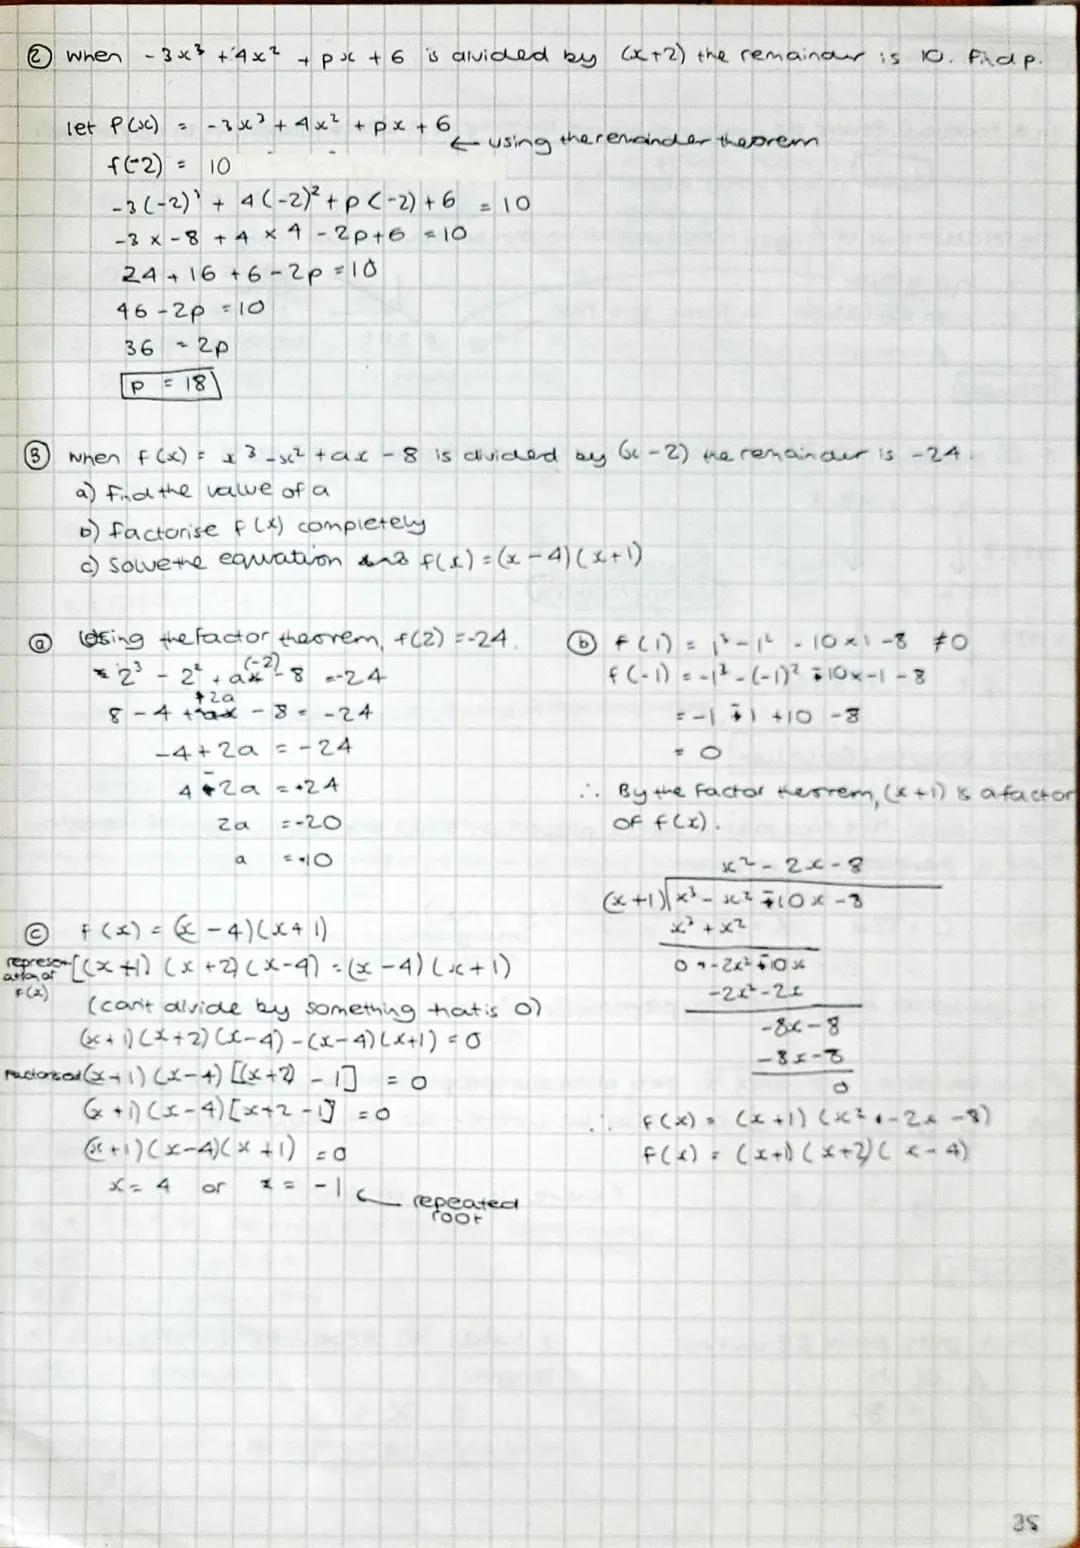 ② When -3x³ + 4x² + px + 6 is divided by (x+2) the remainder is 10. Find p.
let P(x) = -3x³ + 4x² + px + 6
← using the remainder theorem
f(-2) = 10
-3(-2)³ + 4(-2)² + p(-2) + 6 = 10
-3 x -8 + 4 x 4 - 2p + 6 = 10
24 + 16 + 6 - 2p = 10
46 - 2p = 10
36 = 2p
p = 18
③ When f(x) = x³ - x² + ax - 8 is divided by (x-2) the remainder is -24.
a) Find the value of a
b) factorise f(x) completely
c) Solve the equation f(x) = (x-4)(x+1)
ⓐ Using the factor theorem, f(2) = -24.
2³ - 2² + a(-2) - 8 = -24
+2a
8 - 4 - 8 = -24
-4 + 2a = -24
4 - 2a = +24
2a = -20
a = -10
ⓑ f(1) = 1³ - 1² - 10 x 1 - 8 ≠ 0
f(-1) = -1³ - (-1)² - 10 x -1 - 8
= -1 - 1 + 10 - 8
= 0
∴ By the Factor theorem, (x+1) is a factor
of f(x).
x² - 2x - 8
(x+1) x³ - x² - 10x - 8
x³ + x²
0 - 2x² - 10x
-2x² - 2x
-8x - 8
-8x - 8
0
∴ f(x) = (x+1)(x² - 2x - 8)
f(x) = (x+1)(x+2)(x-4)
ⓒ f(x) = (x-4)(x+1)
represent
ation of
f(x)
[(x+1)(x+2)(x-4) = (x-4)(x+1)
(can't divide by something that is 0)
(x+1)(x+2)(x-4) - (x-4)(x+1) = 0
factorised (x+1)(x-4)[(x+2) - 1] = 0
(x+1)(x-4)[x+2-1] = 0
(x+1)(x-4)(x+1) = 0
x = 4 or x = -1 ← repeated
root
35